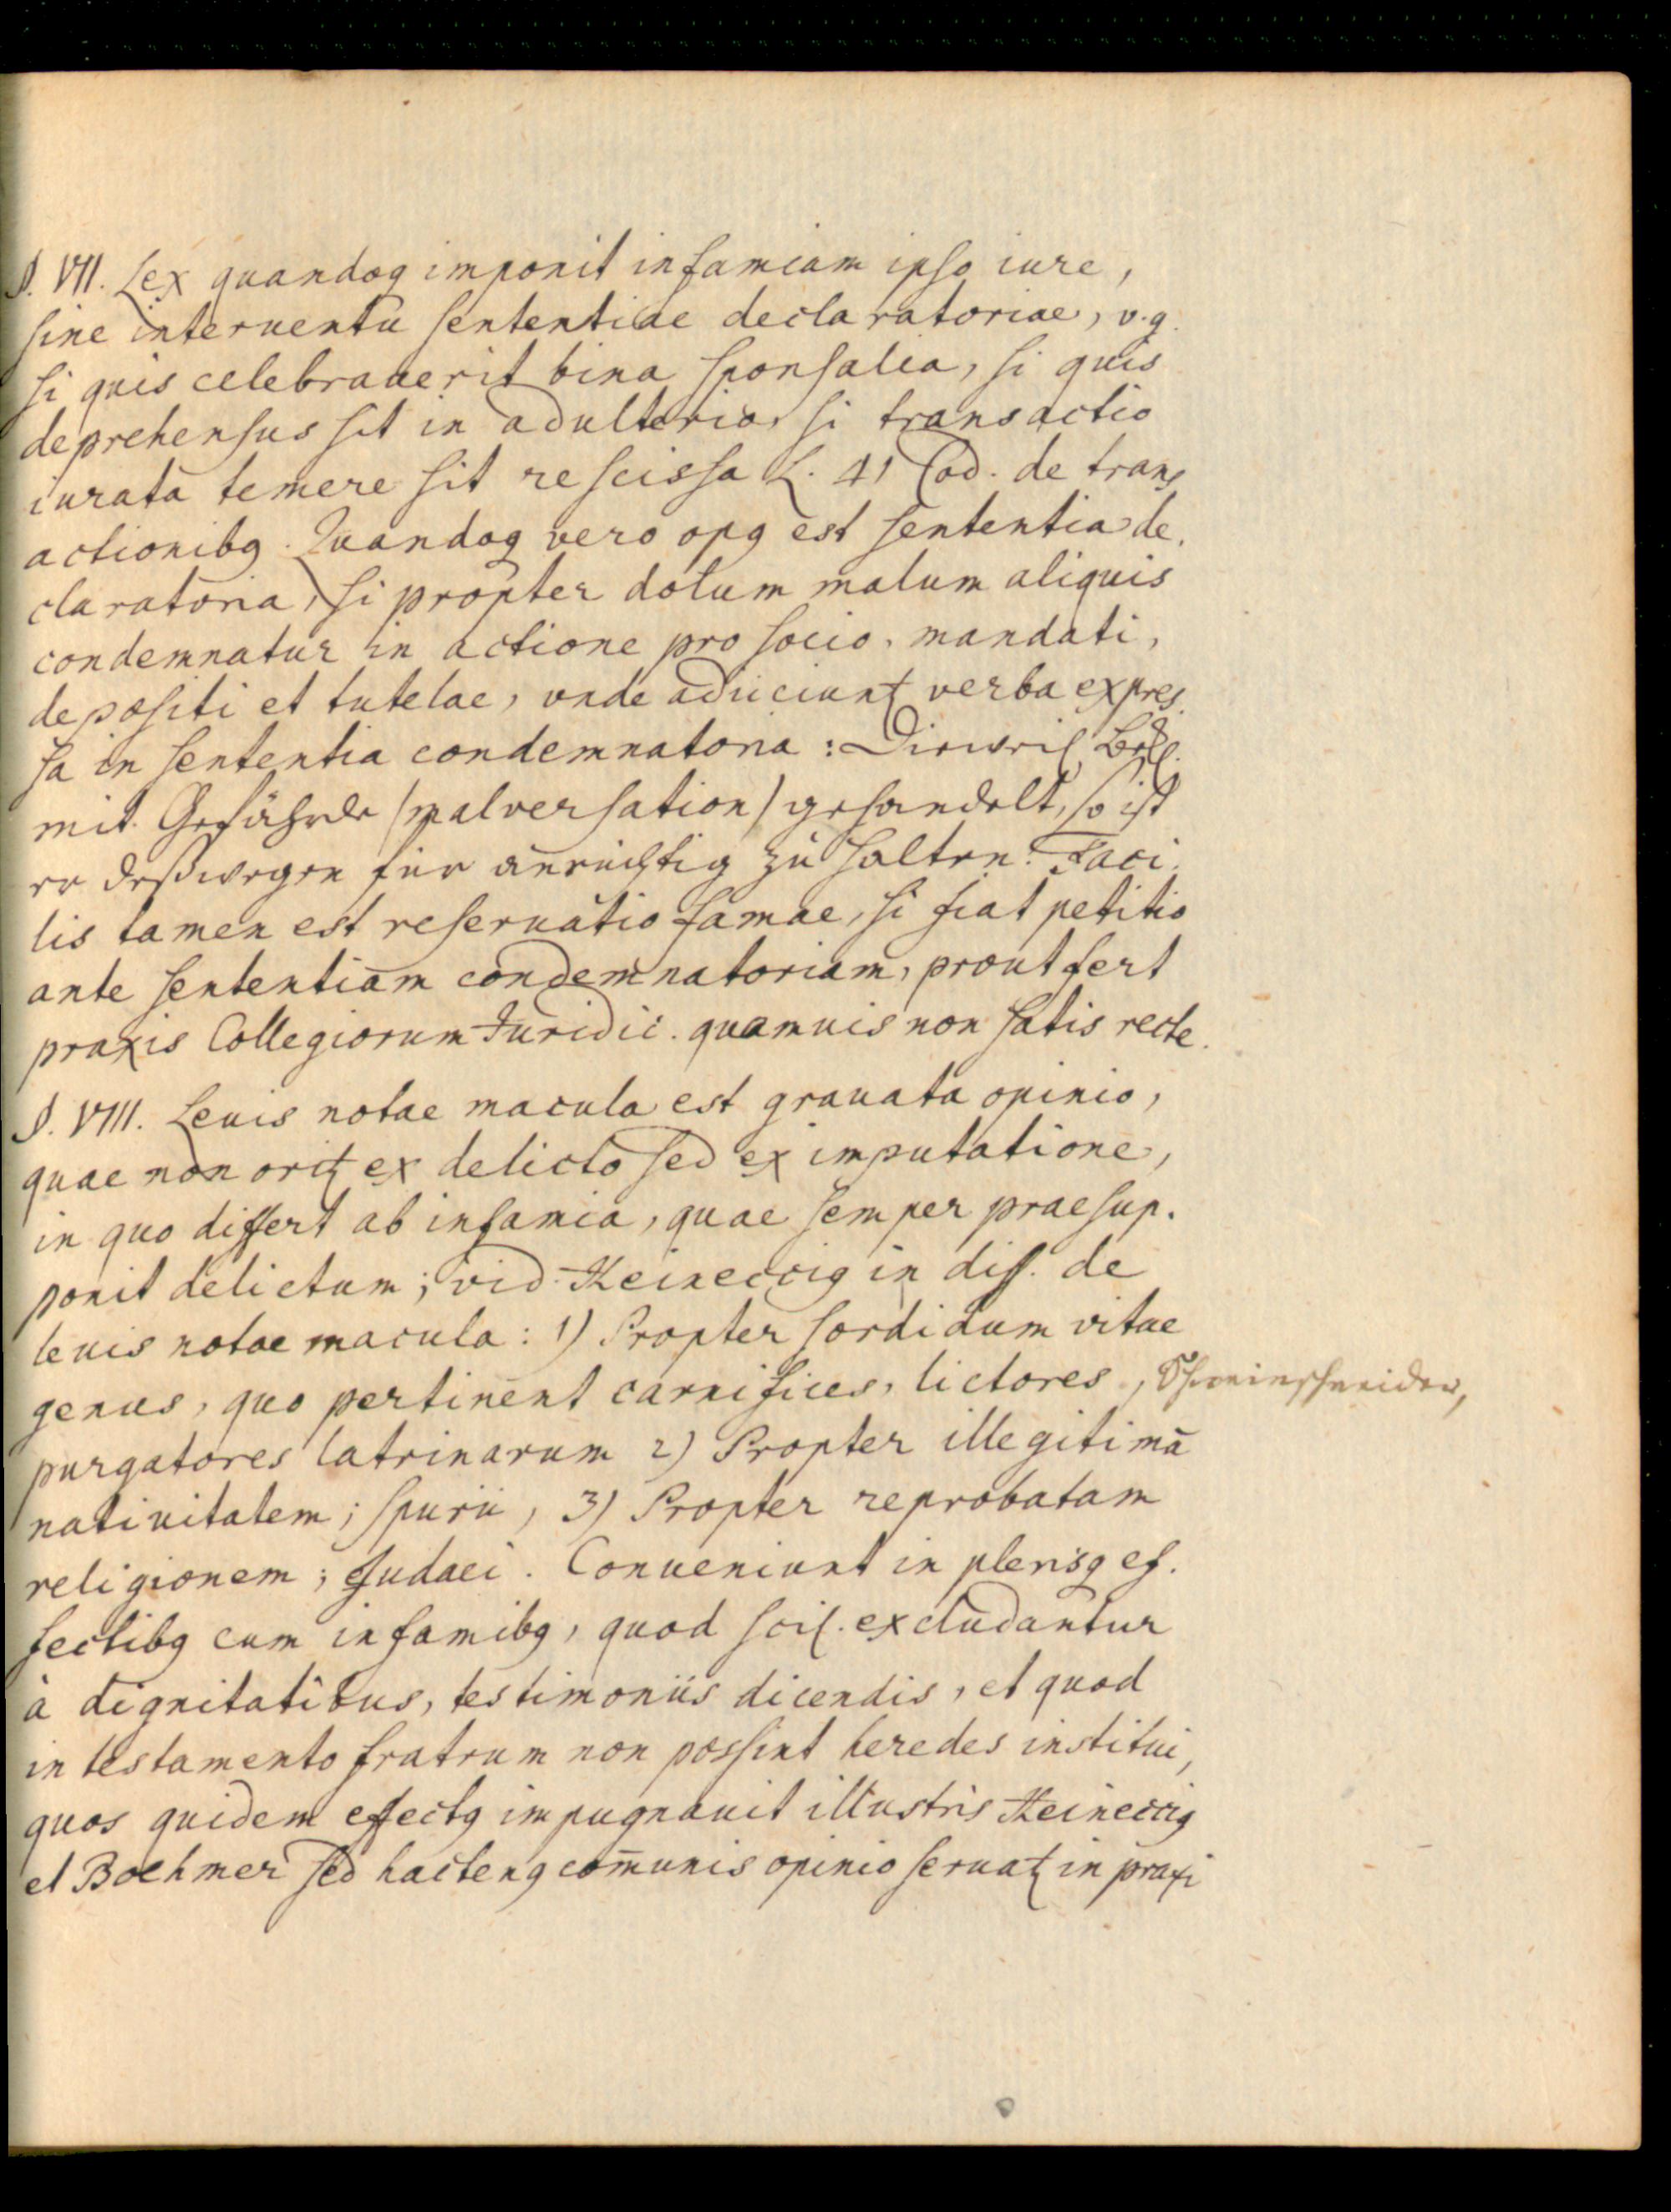 §. VII. Lex quandoq imponit infamiam ipso iure,
sine interuentu sententiae declaratoriae, v. g.
si quis celebrauerit bina sponsalia, si quis
deprehensus sit in adulterio, si transactio
iurata temere sit rescissa L. 41 Cod. de trans
actionibq. Quandoq vero opq est sententia de.
claratoria, si propter dolum malum aliquis
condemnatur in actione pro socio, mandati,
depositi et tutelae, vnde adiiciunt verba expres.
sa in sententia condemnatoria: Dieweil Bekl.
mit Gefährde (malversation) gehandelt, so ist
er deßwegen für anrüchtig zu halten. Faci.
lis tamen est reseruatio famae, si fiat petitio
ante sententiam condemnatoriam, prout fert
praxis Collegiorum Juridic. quamuis non satis recte.
§. VIII. Leuis notae macula est grauata opinio,
quae non orit ex delicto sed ex imputatione,
in quo differt ab infamia, quae semper praesup.
ponit delictum; vid. Heinecciq in diss. de
leuis notae macula: 1) Propter sordidum vitae
genus, quo pertinent carnifices, lictores, Schweinschneider,
purgatores latrinarum 2) Propter illegitimā
natiuitatem; spurii, 3) Propter reprobatam
religionem; Judaei. Conueniunt in plerisq ef.
fectibq cum infamibq, quod scil. excludantur
à dignitatibus, testimoniis dicendis, et quod
in testamento fratrum non possint heredes institui,
quos quidem effectq impugnauit illustris Heinecciq
et Boehmer sed hactenq com̄unis opinio seruat in praxi